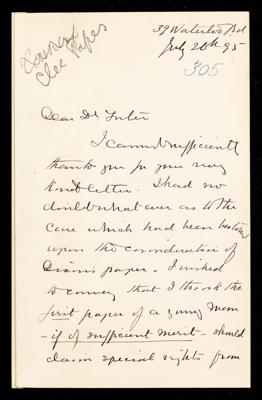 39 Waterloo Rd
July 26th 95
305
Dear Dr Foster
I cannot sufficiently
thank you for your very
kind letter. I had no
doubt whatever as to the
care which had been bestowed
upon the consideration of
Dixon's paper. I wished
to convey that I think the
first paper of a young man
- if of sufficient merit - should
claim special rights from